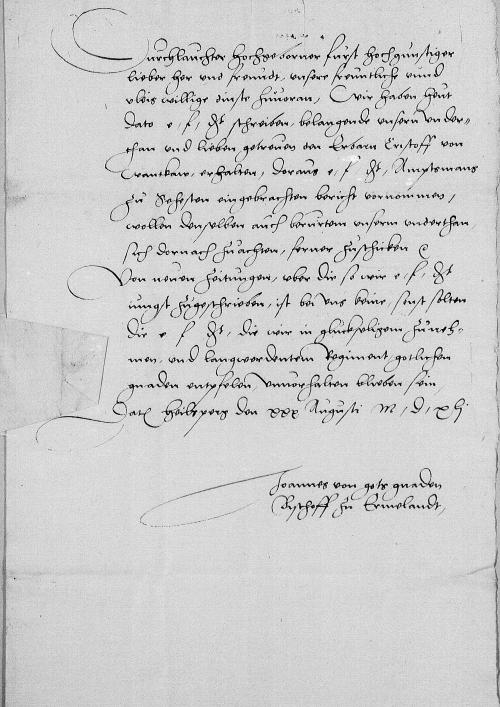 Durchlauchter hochgeborner furst hochgunstiger
lieber her und freundt, unsere freuntliche unnd
vleis willige dinste zuvoran, Wir haben heut
dato e, f, dt schreiben, belangende unsern under-
than und lieben getreuen den Erbarn Cristoff von
Trancksen, erhalten, doraus e, f dt, Amptsmans
zu Sehesten eingebrachten bericht vornommen,
wollen denselben auch berurtem unserm underthan
sich dornach zuachten, ferner zuschicken
Von neuen zeitungen, uber die so wir e, f, dt
iungst zugeschrieben, ist bei uns keine, sunst solten
die e f dt, die wir in gluckseligem zuneh-
men, und langwerendem Regiment gotlichen
gnaden entpfelen, unvorhalten blieben sein
Dat Heilsperg den xxx Augusti M, d, xlj
Joannes von gots gnaden
Bischoff zu Ermelandt,